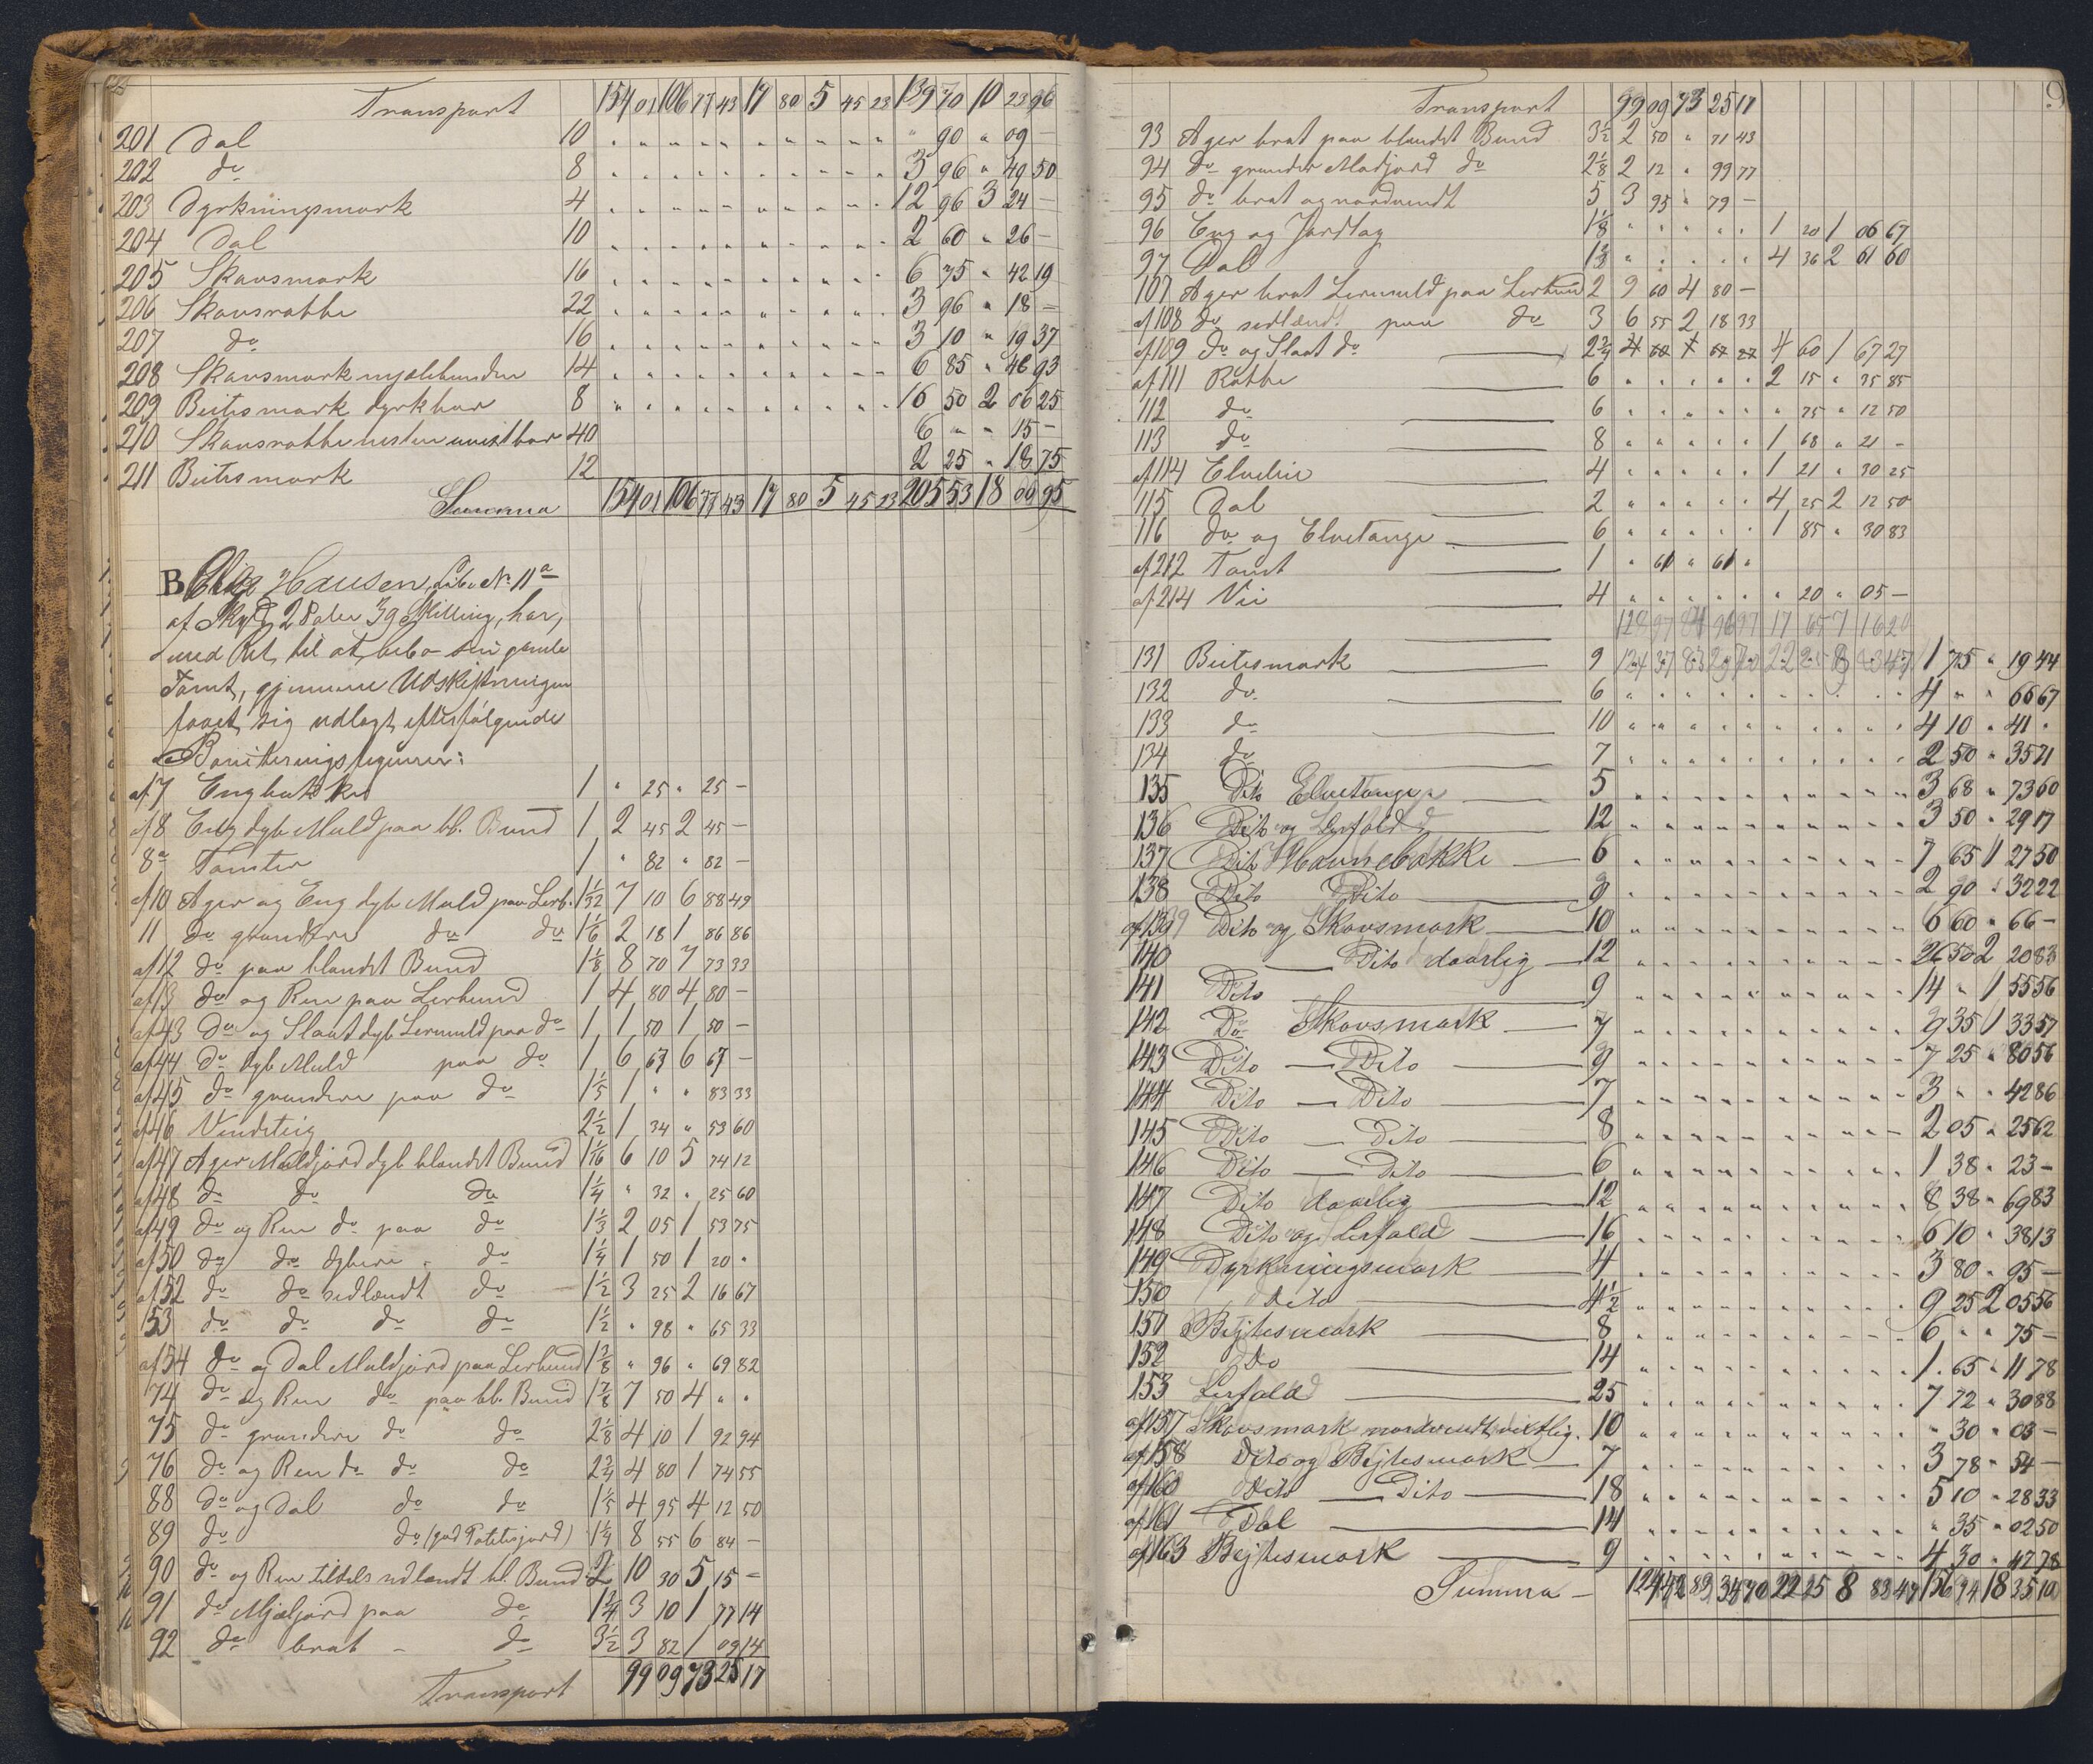 Transport 154 01 106 77 43 17 80 5 45 23 139 70 10 23 96
201 Dal 10 " 90 " 09 -
202 do 8 3 96 " 49 50
203 Dyrkningsmark 4 12 96 3 24 -
204 Dal 10 2 60 " 26 -
205 Skovsmark 16 6 75 " 42 19
206 Skovsrabbe 22 3 96 " 18 -
207 do 16 3 10 " 19 37
208 Skovsmark mjælebunden 14 6 85 " 48 93
209 Beitesmark dyrkbar 8 16 50 2 06 25
210 Skovsrabbe nesten 40 6 " " 15 -
211 Beitesmark 12 2 25 " 18 75
Summa 154 01 106 77 43 17 80 5 45 23 205 53 18 09 95
B Hansen, Løbe No 11a
af Skyld 2 Daler 39 Skilling, har,
med Ret til at bebo sin gamle
Tomt, gjennem Udskiftningen
faaet sig udlagt efterfølgende
Boniteringsfigurer:
af 7 Engbakke 1 " 25 " 25 -
af 8 Eng dyb Muld paa bl. Bund 1 2 45 2 45 -
8a Tomter 1 " 82 " 82 -
af 10 Ager og Eng dyb Muld paa Lerb. 1 1/32 7 10 6 88 49
11 do grundere do do 1 1/6 2 18 1 86 86
af 12 do paa blandet Bund 1 1/8 8 70 7 73 33
af 13 do og Ren paa Lerbund 1 4 80 4 80 -
af 43 do og Slaat dyb Lermuld paa do 1 1 50 1 50 -
af 44 do dyb Muld paa do 1 6 67 6 67 -
af 45 do grundere paa do 1 1/5 1 " " 83 33
af 46 Vendeteig 2 1/2 1 34 " 53 60
af 47 Ager Muldjord dyb blandet Bund 1 1/16 6 10 5 74 12
af 48 do do do 1 1/4 " 32 " 25 60
af 49 do og Ren do paa do 1 1/3 2 05 1 53 75
af 50 do do dybere " do 1 1/4 1 50 1 20 "
af 52 do do sidlændt do 1 1/2 3 25 2 16 67
53 do do do do 1 1/2 " 98 " 65 33
af 54 do og Dal Muldjord paa Lerbund 1 3/8 " 96 " 69 82
74 do og Ren do paa bl. Bund 1 7/8 7 50 4 " "
75 do grundere do do 2 1/8 4 10 1 92 94
76 do og Ren do do do 2 3/4 4 80 1 74 55
88 do og Dal do do 1 1/5 4 95 4 12 50
89 do do (god Potetesjord) 1 1/4 8 55 6 84 -
90 do og Ren tildels sidlændt bl. Bund 2 10 30 5 15 -
91 do Mjæljord paa do 1 3/4 3 10 1 77 14
92 do brat - do 3 1/2 3 82 1 09 14
Transport 99 09 73 25 17
9
Transport 99 09 73 25 17
93 Ager brat paa blandet Bund 3 1/2 2 50 " 71 43
94 do grunder Madjord do 2 1/8 2 12 " 99 77
95 do brat og nordvendt 5 3 95 " 79 -
96 Eng og Jordtag 1 1/8 1 20 1 06 67
97 Dal 1 2/3 4 36 2 61 60
107 Ager brat Lermuld paa Lerbund 2 9 60 4 80 -
af 108 do sidlændt paa do 3 6 55 2 18 33
af 109 do og Slaat do 2 3/4 4 60 1 67 27 4 60 1 67 27
af 111 Rabbe 6 2 15 " 35 85
112 do 6 " 75 " 12 50
113 do 8 1 68 " 21 -
af 114 Elvelie 4 1 21 " 30 25
115 Dal 2 4 25 2 12 50
116 do og Elvetange 6 1 85 " 30 83
af 212 Tomt 1 " 61 " 61 "
af 214 Vei 4 " 20 " 05 -
131 Beitesmark 9 1 75 " 19 44
132 do 6 4 " " 66 67
133 do 10 4 10 " 41 "
134 do 7 2 50 " 35 71
135 Dito Elvetange 5 3 68 " 73 60
136 Dito og Lerfald 12 3 50 " 29 17
137 Dito Haunebakke 6 7 65 1 27 50
138 Dito Dito 9 2 90 " 32 22
af 139 Dito og Skovsmark 10 6 60 " 66 -
140 Dito daarlig 12 26 50 2 20 83
141 Dito 9 14 " 1 55 56
142 Do Skovsmark 7 9 35 1 33 57
143 Dito Dito 9 7 25 " 80 56
144 Dito Dito 7 3 " " 42 86
145 Dito Dito 8 2 05 " 25 62
146 Dito Dito 6 1 38 " 23 -
147 Dito daarlig 12 8 38 " 69 83
148 Dito og Lerfald 16 6 10 " 38 13
149 Dyrkningsmark 4 3 80 " 95 -
150 Dito 4 1/2 9 25 2 05 56
151 Bejtesmark 8 6 " " 75 -
152 Do 14 1 65 " 11 78
153 Lerfald 25 7 72 " 30 88
af 157 Skovsmark nordvendt, 10 " 30 " 03 -
af 158 Dito og Bejtesmark 7 3 78 " 54 -
af 160 Dito Dito 18 5 10 " 28 33
af 161 Dal 14 " 35 " 02 50
af 163 Bejtesmark 9 4 30 " 47 78
Summa 124 42 83 34 70 22 25 8 83 47 156 94 18 35 10